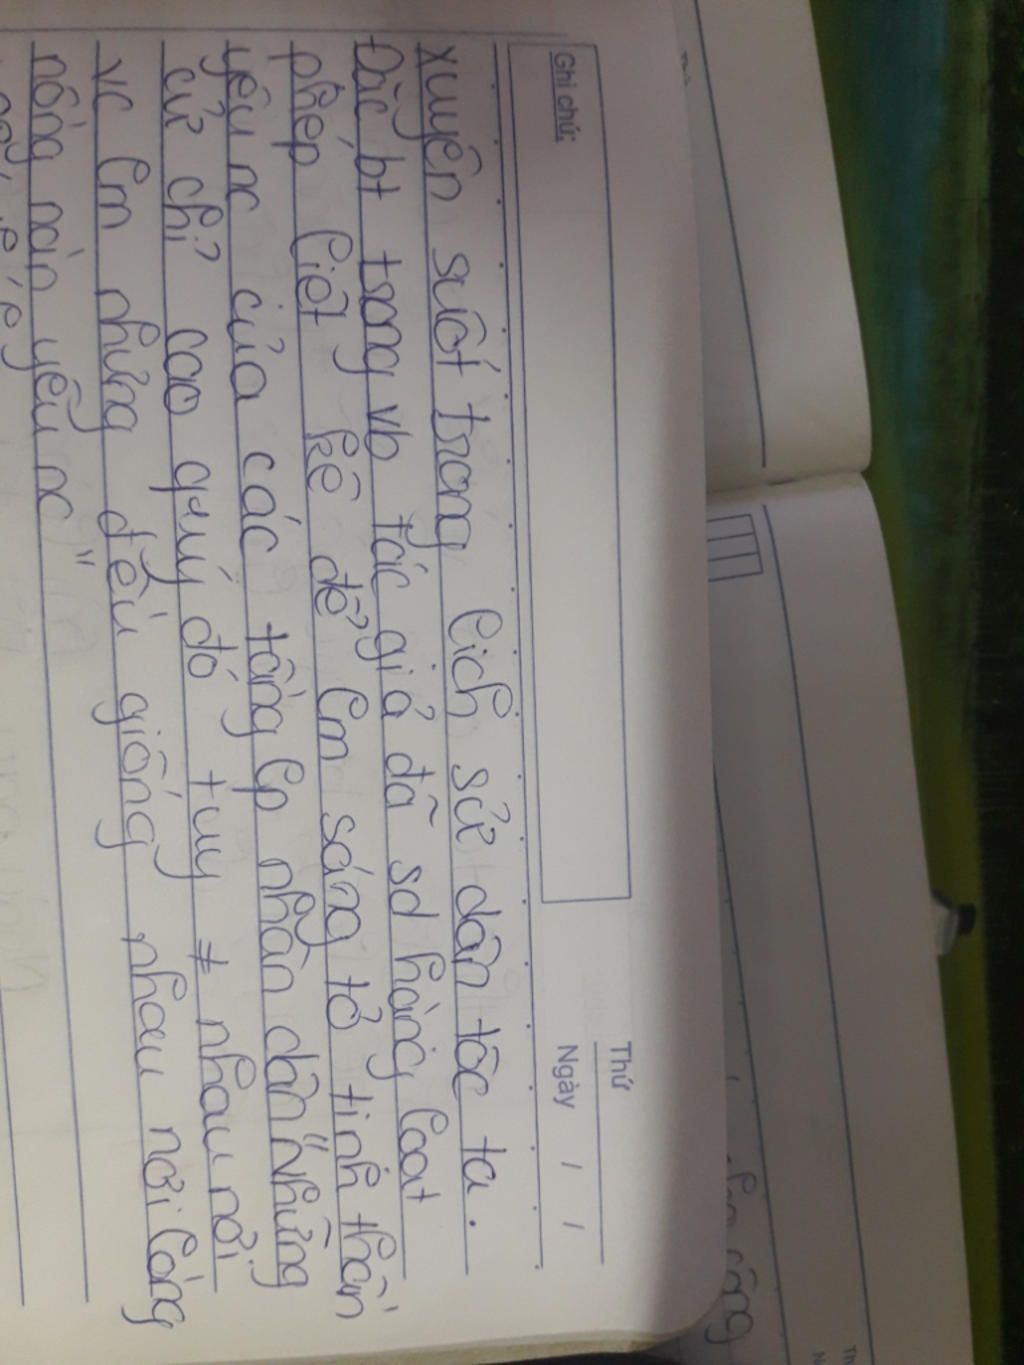 Thứ
Ghi chú:
Ngày / /
xuyên suốt trong lịch sử dân tộc ta.
Đặc bt trong vb tác giả đã sd hàng loạt
phép liệt kê để lm sáng tỏ tinh thần
yêu nc của các tầng lp nhân dân "Những
cử chỉ cao quý đó tuy ≠ nhau nơi
vc lm nhưng đều giống nhau nơi lòng
nồng nàn yêu nc"